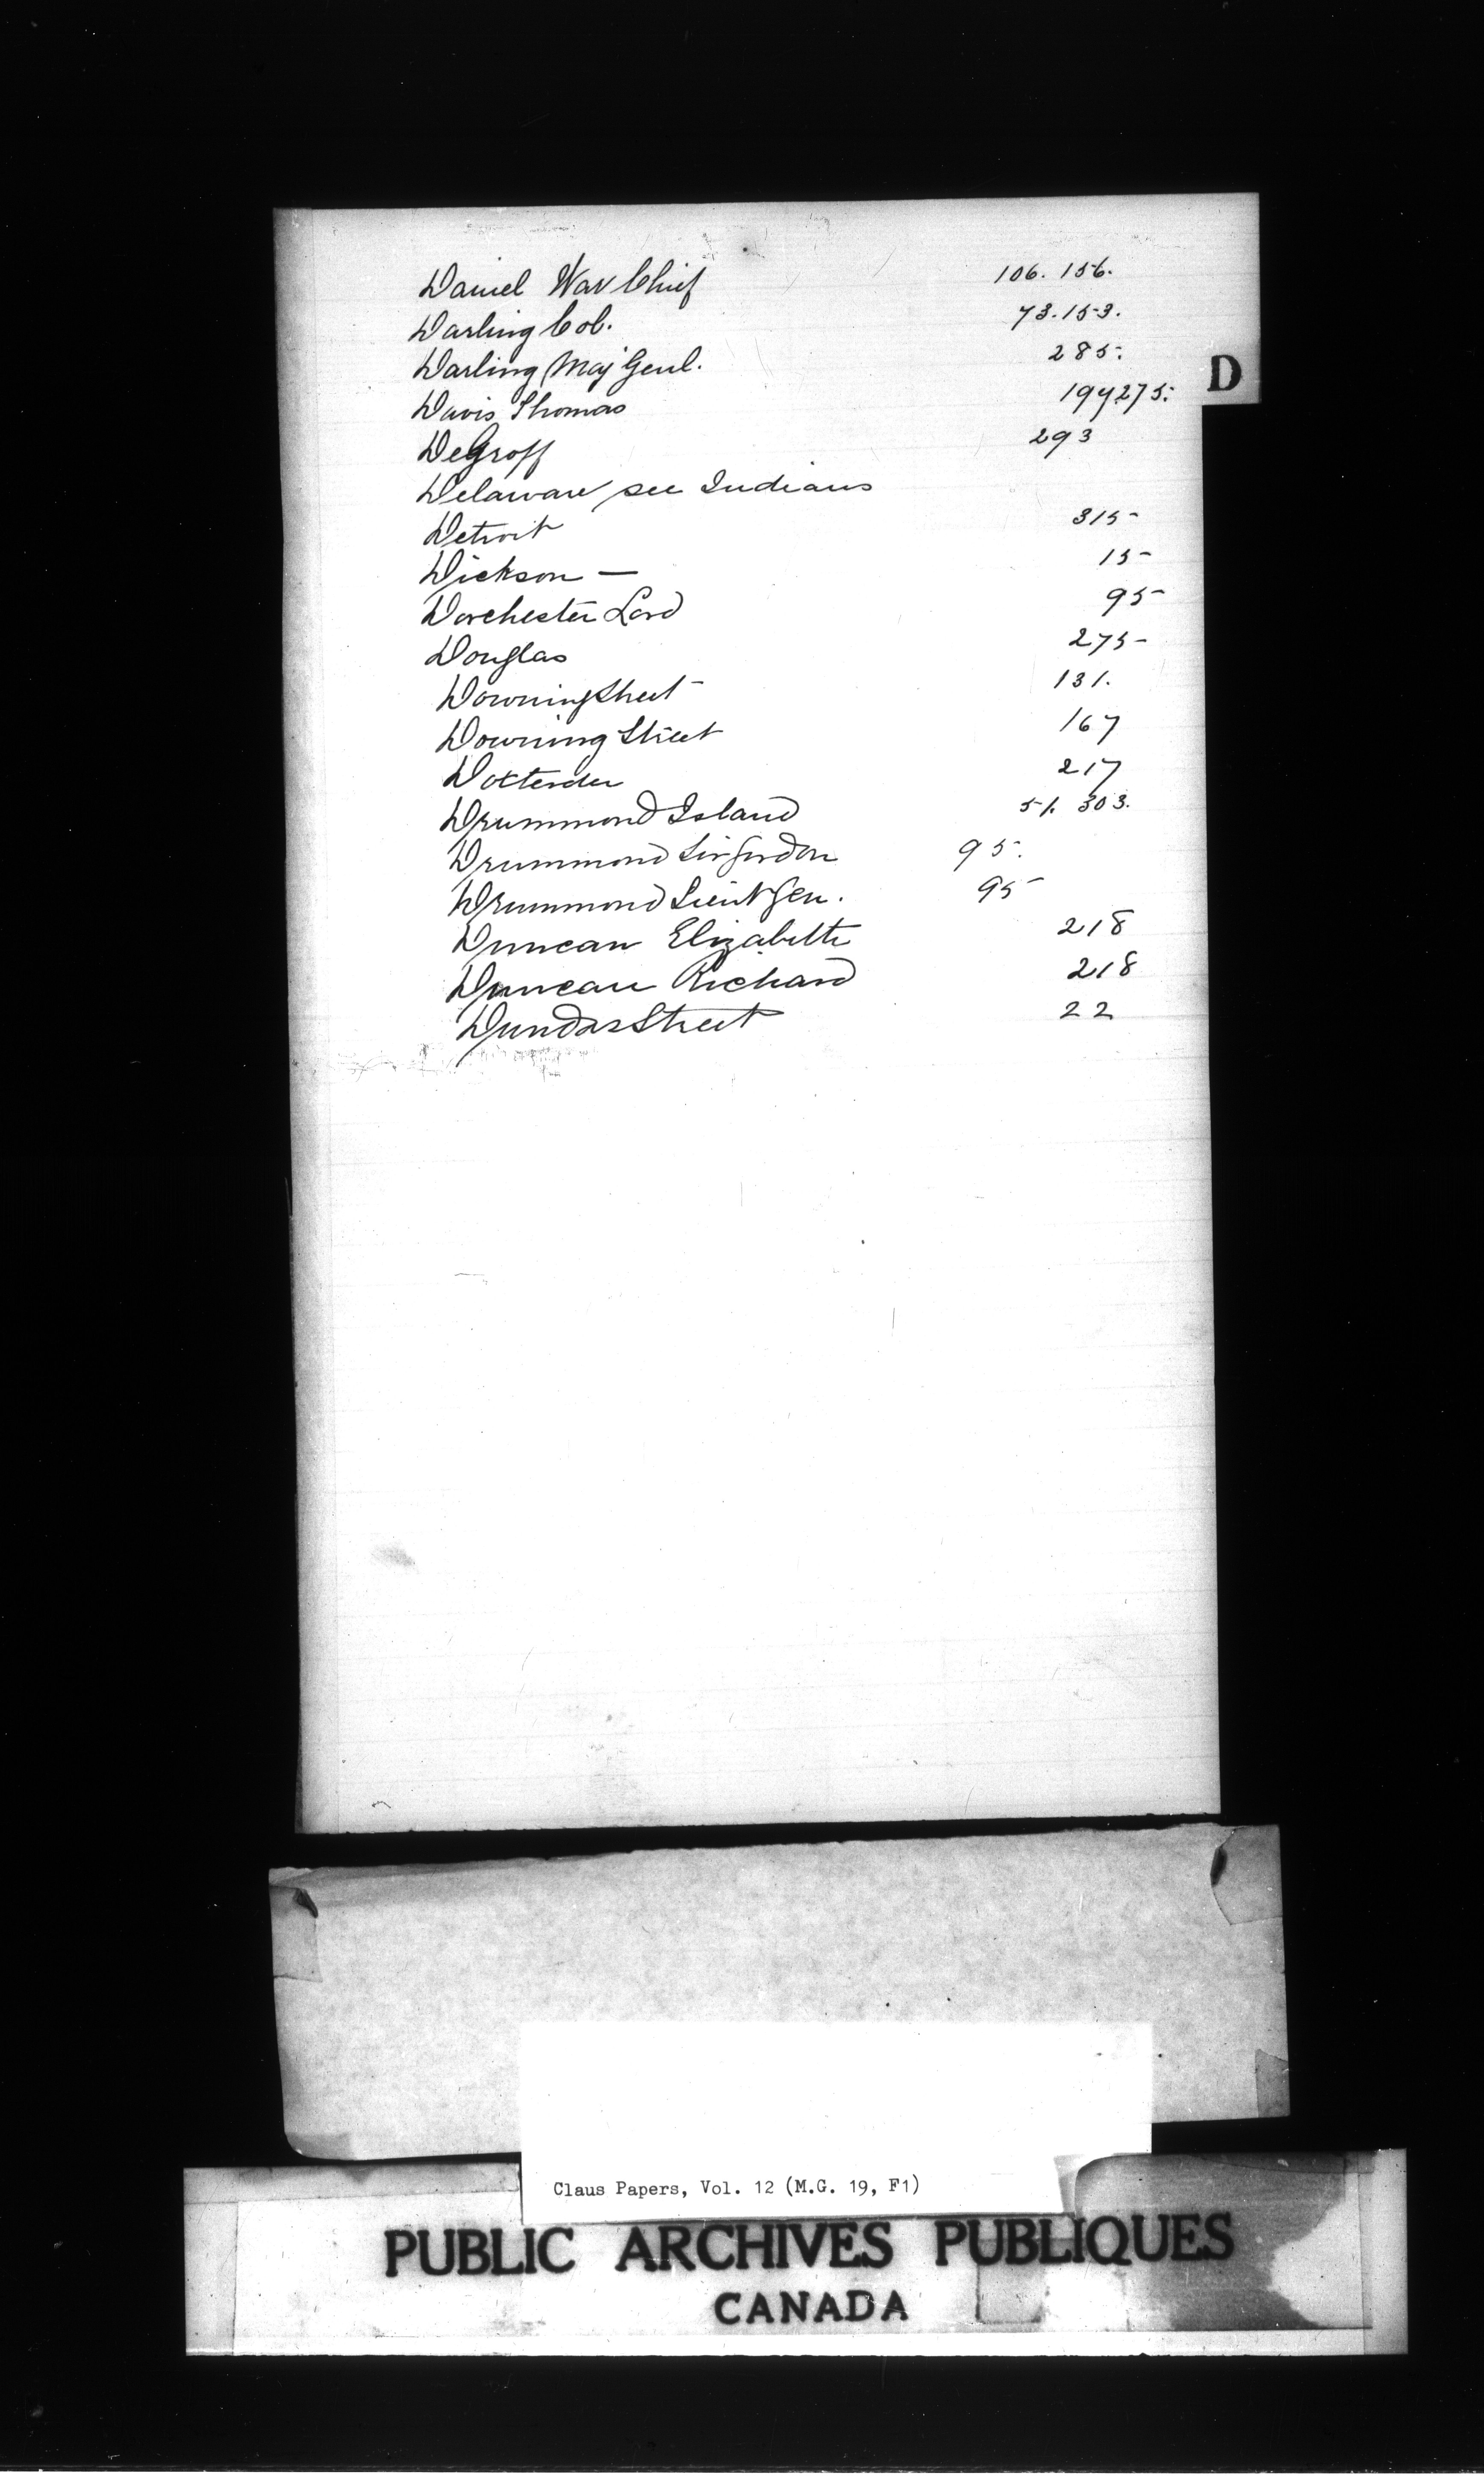 Daniel War Chief 106. 156.
Darling Col. 73. 153.
Darling Maj Genl. 285.
D
Davis Thomas 197 275.
DeGroff 293
Delaware see Indians
Detroit 315
Dickson — 15
Dorchester Lord 95
Douglas 275
Downing Street 131.
Downing Street 167
Doxtender 217
Drummond Island 51. 303.
Drummond Sir Gordon 95.
Drummond Lieut Gen. 95
Duncan Elizabeth 218
Duncan Richard 218
Dundas Street 22
Claus Papers, Vol. 12 (M.G. 19, F1)
PUBLIC ARCHIVES PUBLIQUES
CANADA